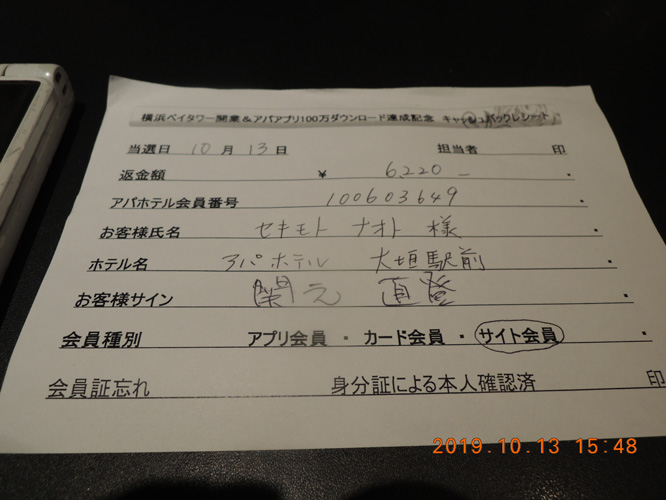 横浜ベイタワー開業&アパアプリ100万ダウンロード達成記念 キャッシュバックレシート
当選日 10月13日 担当者 印
返金額 ¥ 6,220-
アパホテル会員番号 100603649
お客様氏名 セキモト ナオト 様
ホテル名 アパホテル 大垣駅前
お客様サイン 関元 直登
会員種別 アプリ会員 ・ カード会員 ・ サイト会員
会員証忘れ 身分証による本人確認済 印
2019.10.13 15:48